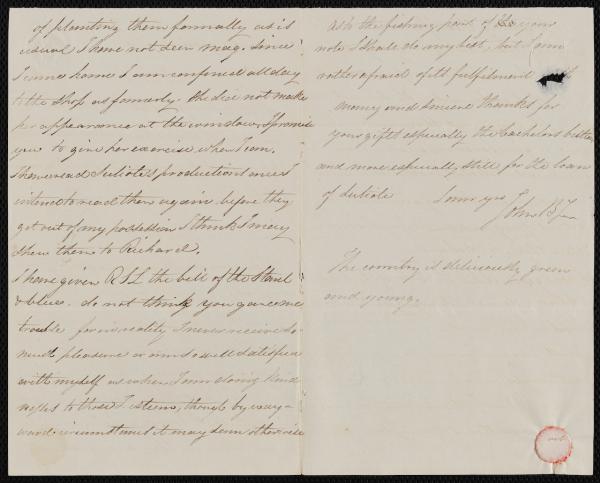 of planting them formally as is
usual I have not seen mag. since
I came home I am confined all day
to the shop as formerly. She did not make
her appearance at the window I promise
you to give her exercise when I can.
I have read Suliote's productions once
intend to read them again before they
get out of my possession I think I may
shew them to Richard.
I have given R S L the bill of the Stand
& blues. do not think you gave me
trouble for in reality I never receive so
much pleasure or am so well satisfied
with myself as when I am doing kind
nesses to those I esteem, though by way-
ward circumstances it may seem otherwise
as to the fishing part of your
note I shall do my best, but I am
rather afraid of its fulfilment
many and sincere thanks for
your gifts especially the bachelors button
and more especially still for the loan
of Suliote I am yrs
John B
The country is deliciously green
and young.